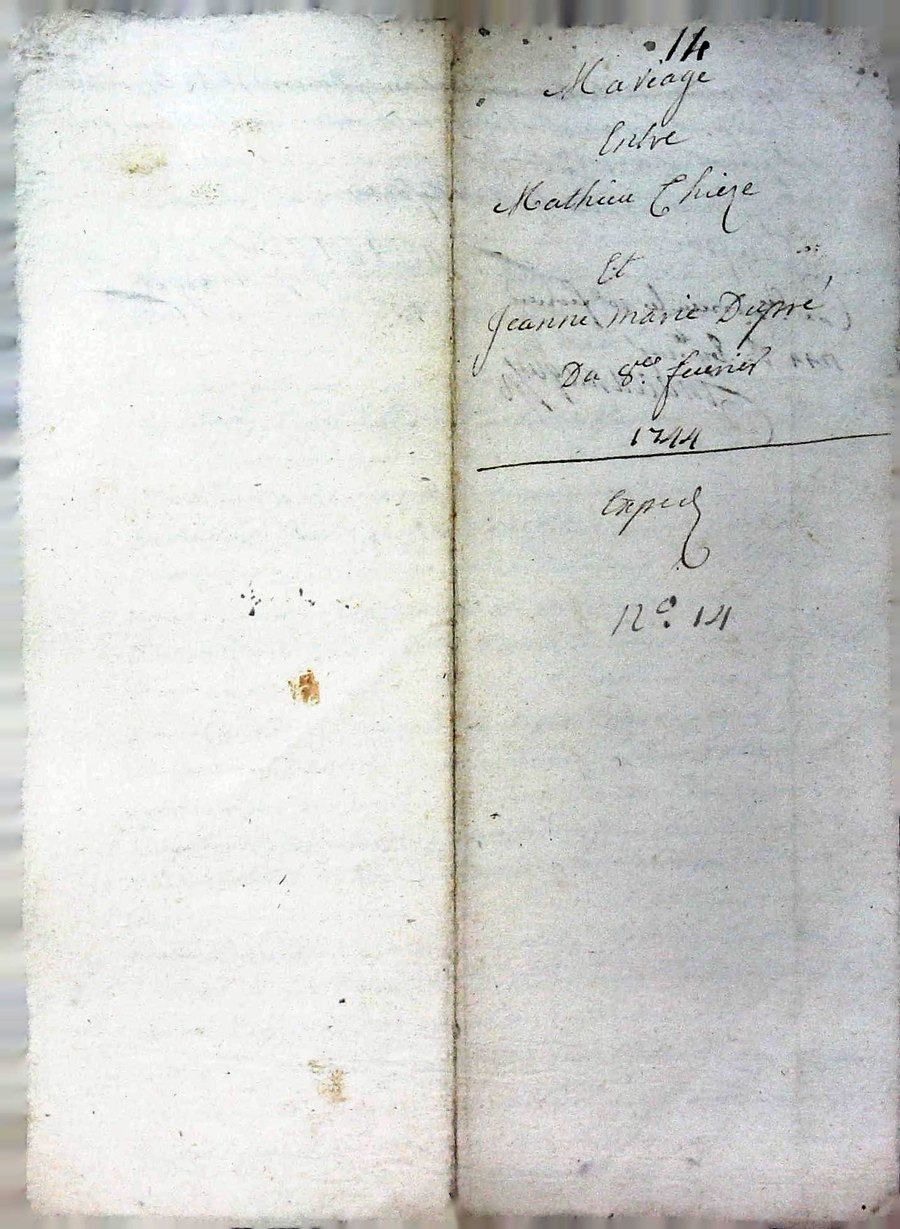 14
Mariage
Entre
Mathieu Thieze
Et
Jeanne marie Dupré
Du 8.ee feurier
1744
Exped
N.o 14